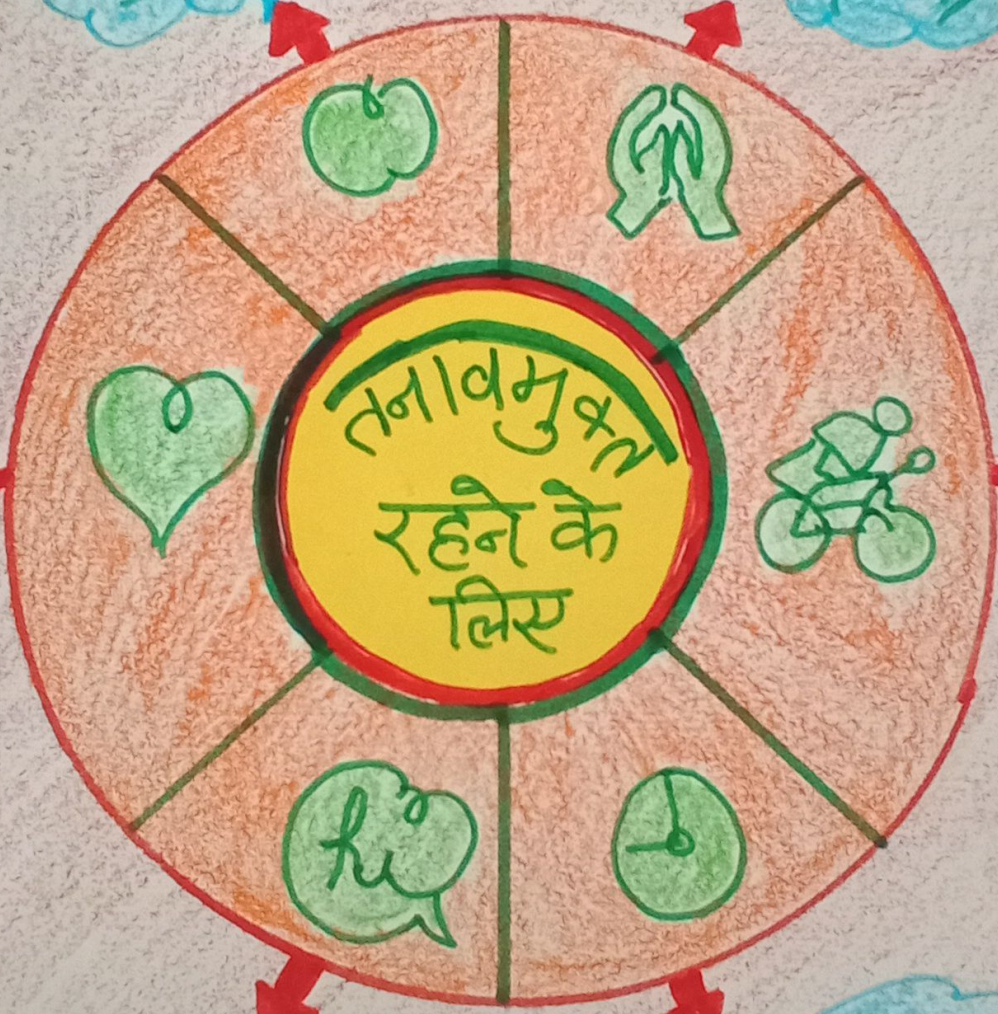 तनावमुक्त
रहने के
लिए
hi